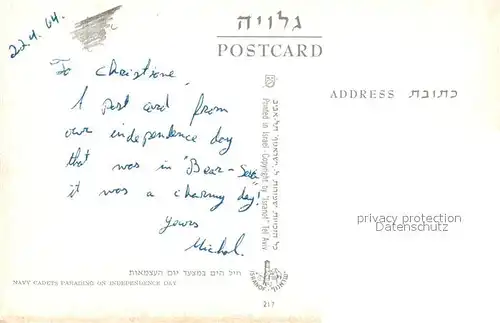 22.4.64.
גלויה
POSTCARD
To Christiane,
A post card from
our independence day
that was in "Bear-Seva"
it was a charmy day!
yours
Michal.
ADDRESS כתובת
Printed in Israel Copyright by "Isranof" Tel Aviv
privacy protection
Datenschutz
חיל הים במצעד יום העצמאות
NAVY CADETS PARADING ON INDEPENDENCE DAY
217